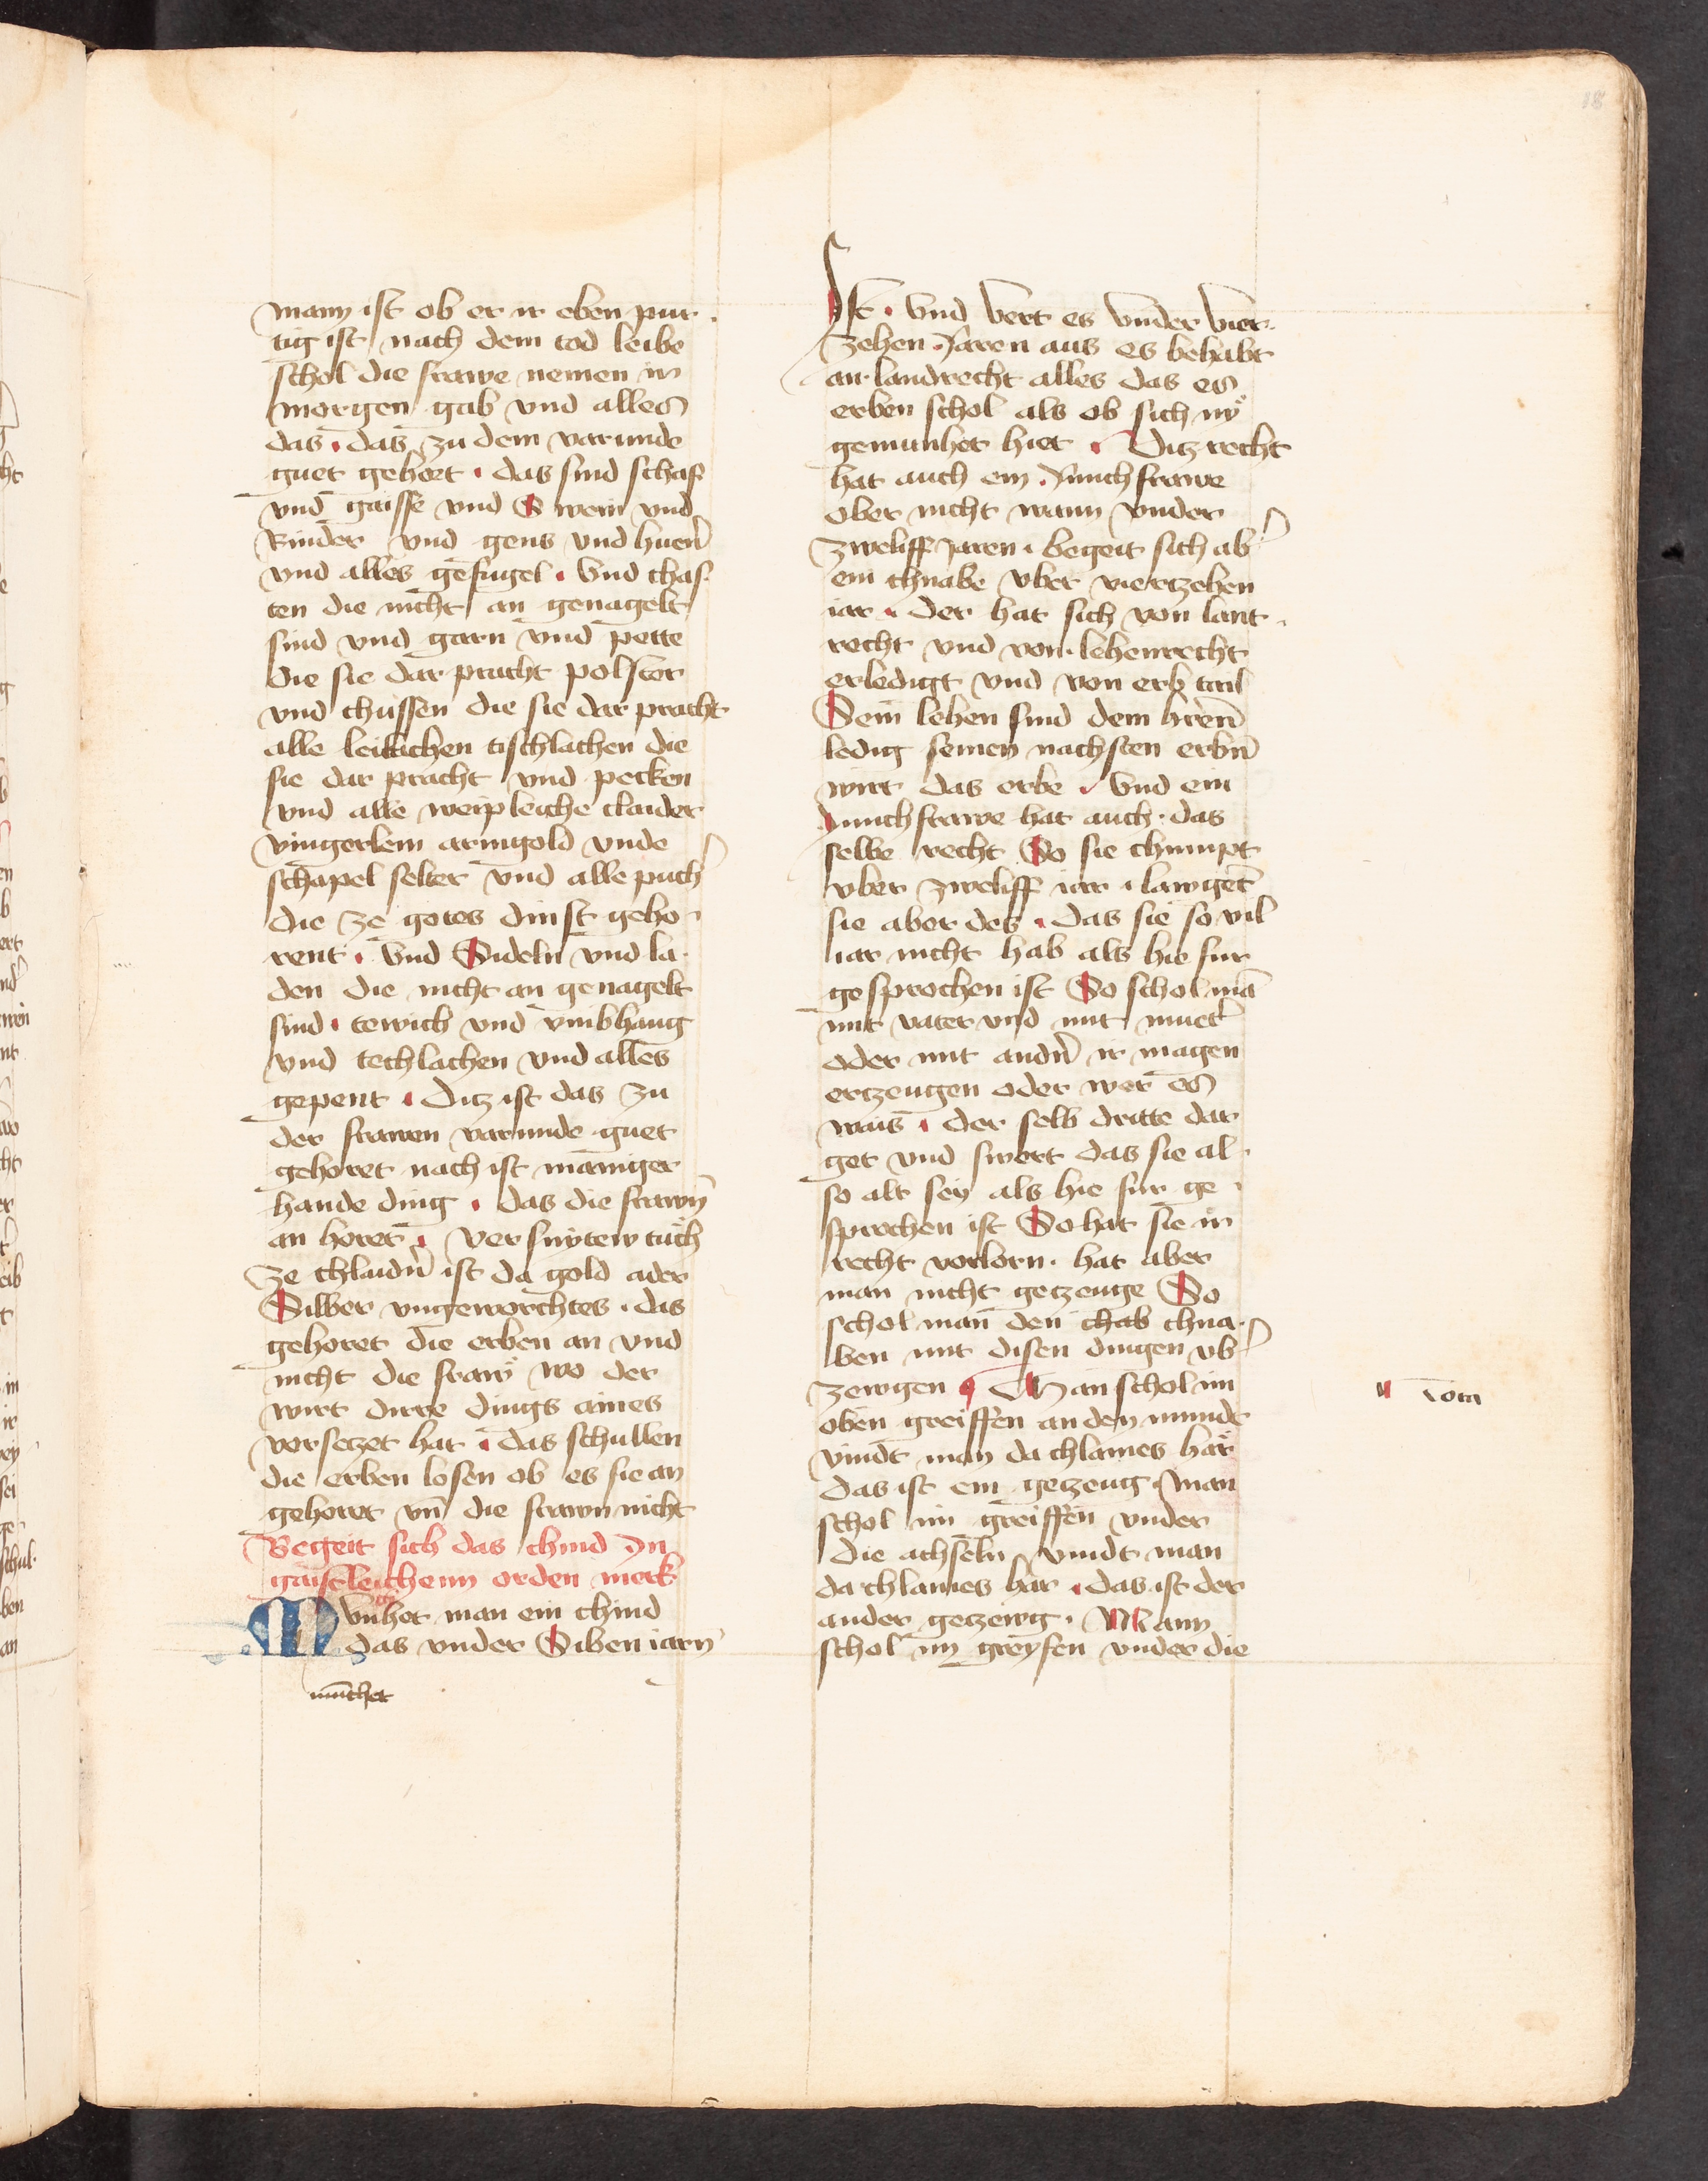 18
man ist ob er ir eben pur
tig ist nach dem tod leibe
schol die frawe nemen ir
morgen gab vnd alles
das . das zu dem varunde
guet gehort . das sind schaf
vnd gaisse vnd Swein vnd
Rinder vnd gens vnd huen̄
vnd alles gefugel . Vnd chas
ten die nicht an genagelt
sind vnd garn vnd pette
die sie dar pracht polster
vnd chussen die sie dar pracht
alle leilachen tischlachen die
sie dar pracht vnd pecken
vnd alle weipleiche claider
vingerlein armgold vnde
schapel selter vnd alle puch̄
die ze gotes dinst geho
rent . Vnd Sideln vnd la
den die nicht an genagelt
sind . tewich vnd vmbhang
vnd techlachen vnd alles
gepent . Ditz ist das zu
der frawen varunde guet
gehoret nach ist maniger
hande ding . das die frawn̄
an horet . Versnyten tuch
ze chlaidn̄ ist da gold ader
Silber vngeworchtes . das
gehoret die erben an vnd
nicht die fraw wo der
wirt dirre dings aines
versetzet hat . das schullen
die erben losen ob es sie an
gehoret vn̄ die frawn nicht
Begeit sich das chind In
gaistleichenn orden merk
Mvnhet man ein chind
das vnder Siben iarn
mūchet
Ist . vnd vert es vnder vier
zehen Jaren aus es behabt
an landrecht alles das es
erben schol als ob sich ny
gemunhet hiet . Ditz recht
hat auch ein Junchfrawe
ober nicht wann vnder
zweliff Jaren . begeit sich ab̄
ein chnabe vber viertzehen
iar . der hat sich von lant
recht vnd von lehenrecht
erledigt vnd von erb tail
Sein lehen sind dem hren̄
ledig seinen nachsten erbn̄
wirt das erbe . vnd ein
Junchfrawe hat auch das
selbe recht So sie chumpt
vber zweliff iar . lawgent
sie aber des . das sie so vil
iar nicht hab als hie fur
gesprochen ist So schol mā
mit vater vnd mit muet̄
oder mit andn̄ ir magen
ertzeugen oder wer es
wais . der selb dritte dar
get vnd swert das sie al
so alt sey als hie fur ge
sprochen ist So hat sie ir
recht verlorn . hat aber
man nicht getzeuge So
schol man den chab chna
ben mit disen dingen vb̄
zewgen . Man schol im
oben greiffen an den munde
vindt man da chlaines har
das ist ein getzeug . Man
schol im greiffen vnder
die achseln vindt man
da chlaines har . das ist der
ander getzewg . Mann
schol im greyfen vnder die